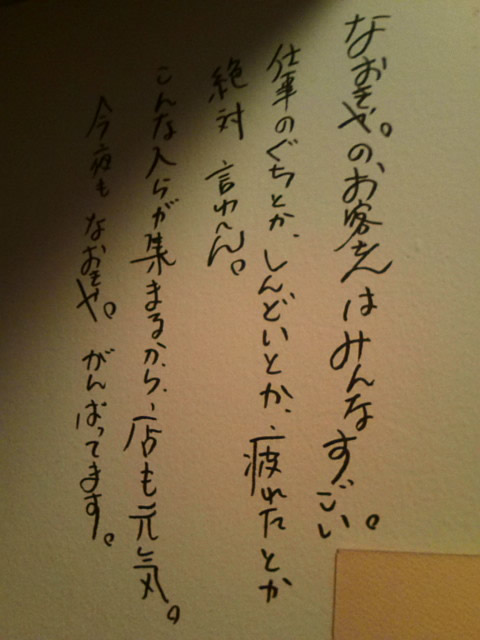 なおきや。のお客さんはみんなすごい。
仕事のぐちとか、しんどいとか、疲れたとか
絶対 言わへん。
こんな人らが集まるから、店も元気。
今夜も なおきや。がんばってます。